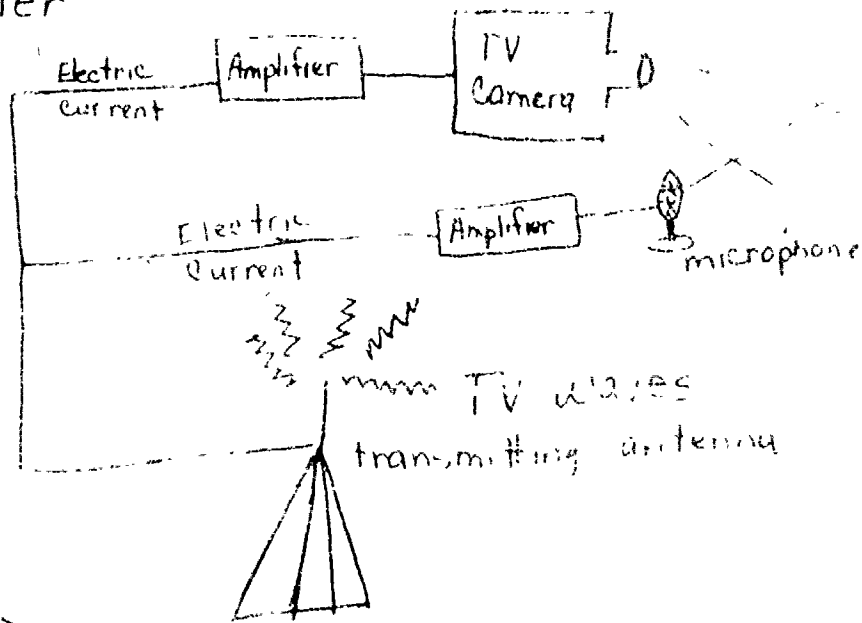 Electric
Current
Amplifier
TV
Camera
Electric
Current
Amplifier
microphone
TV waves
transmitting antenna